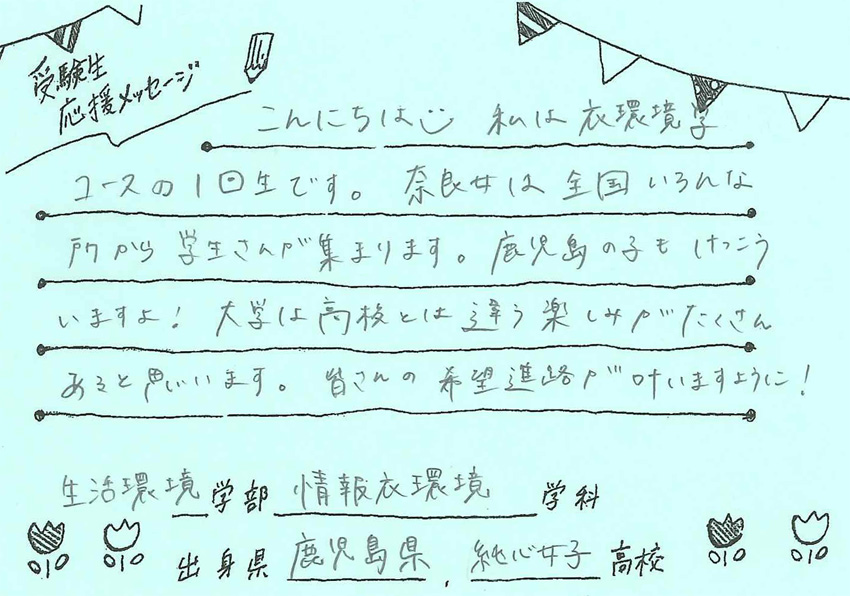 受験生
応援メッセージ
こんにちは 私は衣環境学
コースの1回生です。 奈良女は全国いろんな
所から学生さんが集まります。鹿児島の子もけっこう
いますよ! 大学は高校とは違う楽しみがたくさん
あると思います。 皆さんの希望進路が叶いますように!
生活環境学部 情報衣環境学科
出身県 鹿児島県, 純心女子高校